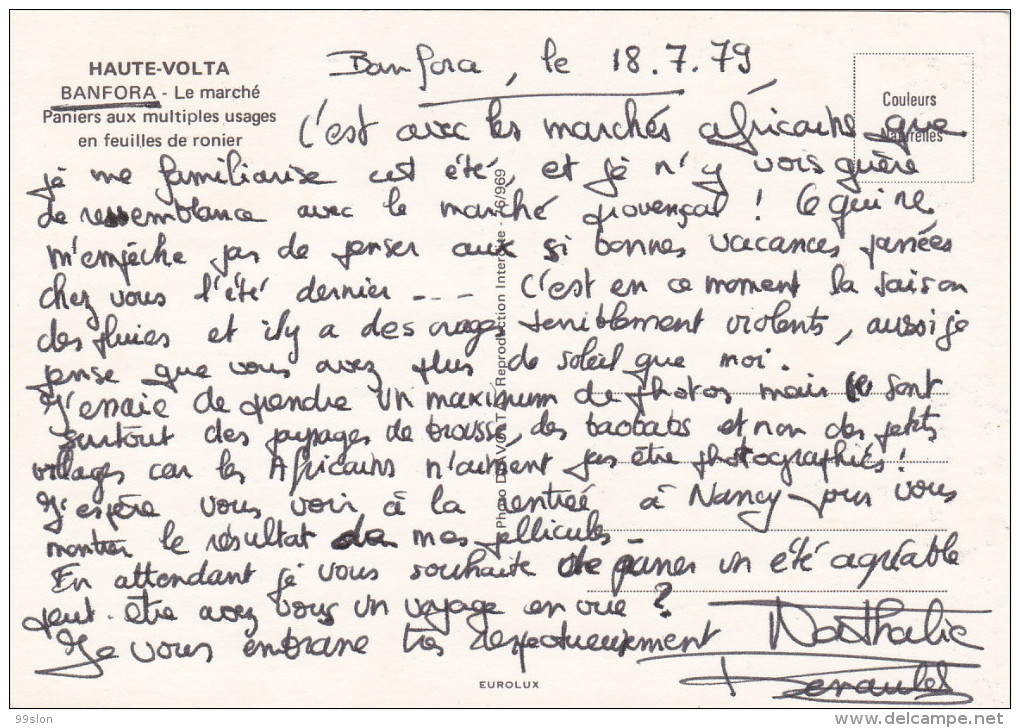 HAUTE-VOLTA
BANFORA - Le marché
Paniers aux multiples usages
en feuilles de ronier
Couleurs
Naturelles
Banfora, le 18.7.79
C'est avec les marchés africains que
je me familiarise cet été, et je n'y vois guère
de ressemblance avec le marché provençal ! Ce qui ne
m'empêche pas de penser aux si bonnes vacances passées
chez vous l'été dernier - - - C'est en ce moment la saison
des pluies et il y a des orages terriblement violents, aussi je
pense que vous avez plus de soleil que moi.
J'essaie de prendre un maximum de photos mais ce sont
surtout des paysages de brousse, des baobabs et non des petits
villages car les Africains n'aiment pas être photographiés !
J'espère vous voir à la rentrée à Nancy pour vous
montrer le résultat de mes pellicules -
En attendant je vous souhaite de passer un été agréable
peut-être avez vous un voyage en vue ?
Je vous embrasse très respectueusement Nathalie
Photo D
VOLTA
Reproduction Interdite - 76/969
EUROLUX
99slon
www.delcampe.net